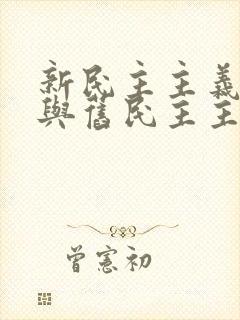 新民主主義
與舊民主主
曾憲初